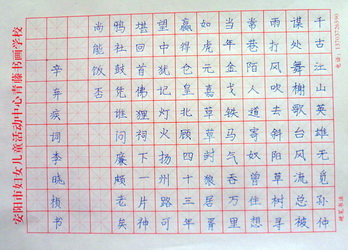 电话：13703726390
硬笔书法
千古江山英雄无觅孙仲
谋处舞榭歌台风流总被
雨打风吹去斜阳草树寻
常巷陌人道寄奴曾住想
当年金戈铁马气吞万里
如虎元嘉草草封狼居胥
赢得仓皇北顾四十三年
望中犹记灯火扬州路可
堪回首佛狸祠下一片神
鸦社鼓凭谁问廉颇老矣
尚能饭否
辛弃疾词李晓桢书
安阳市妇女儿童活动中心青藤书画学校